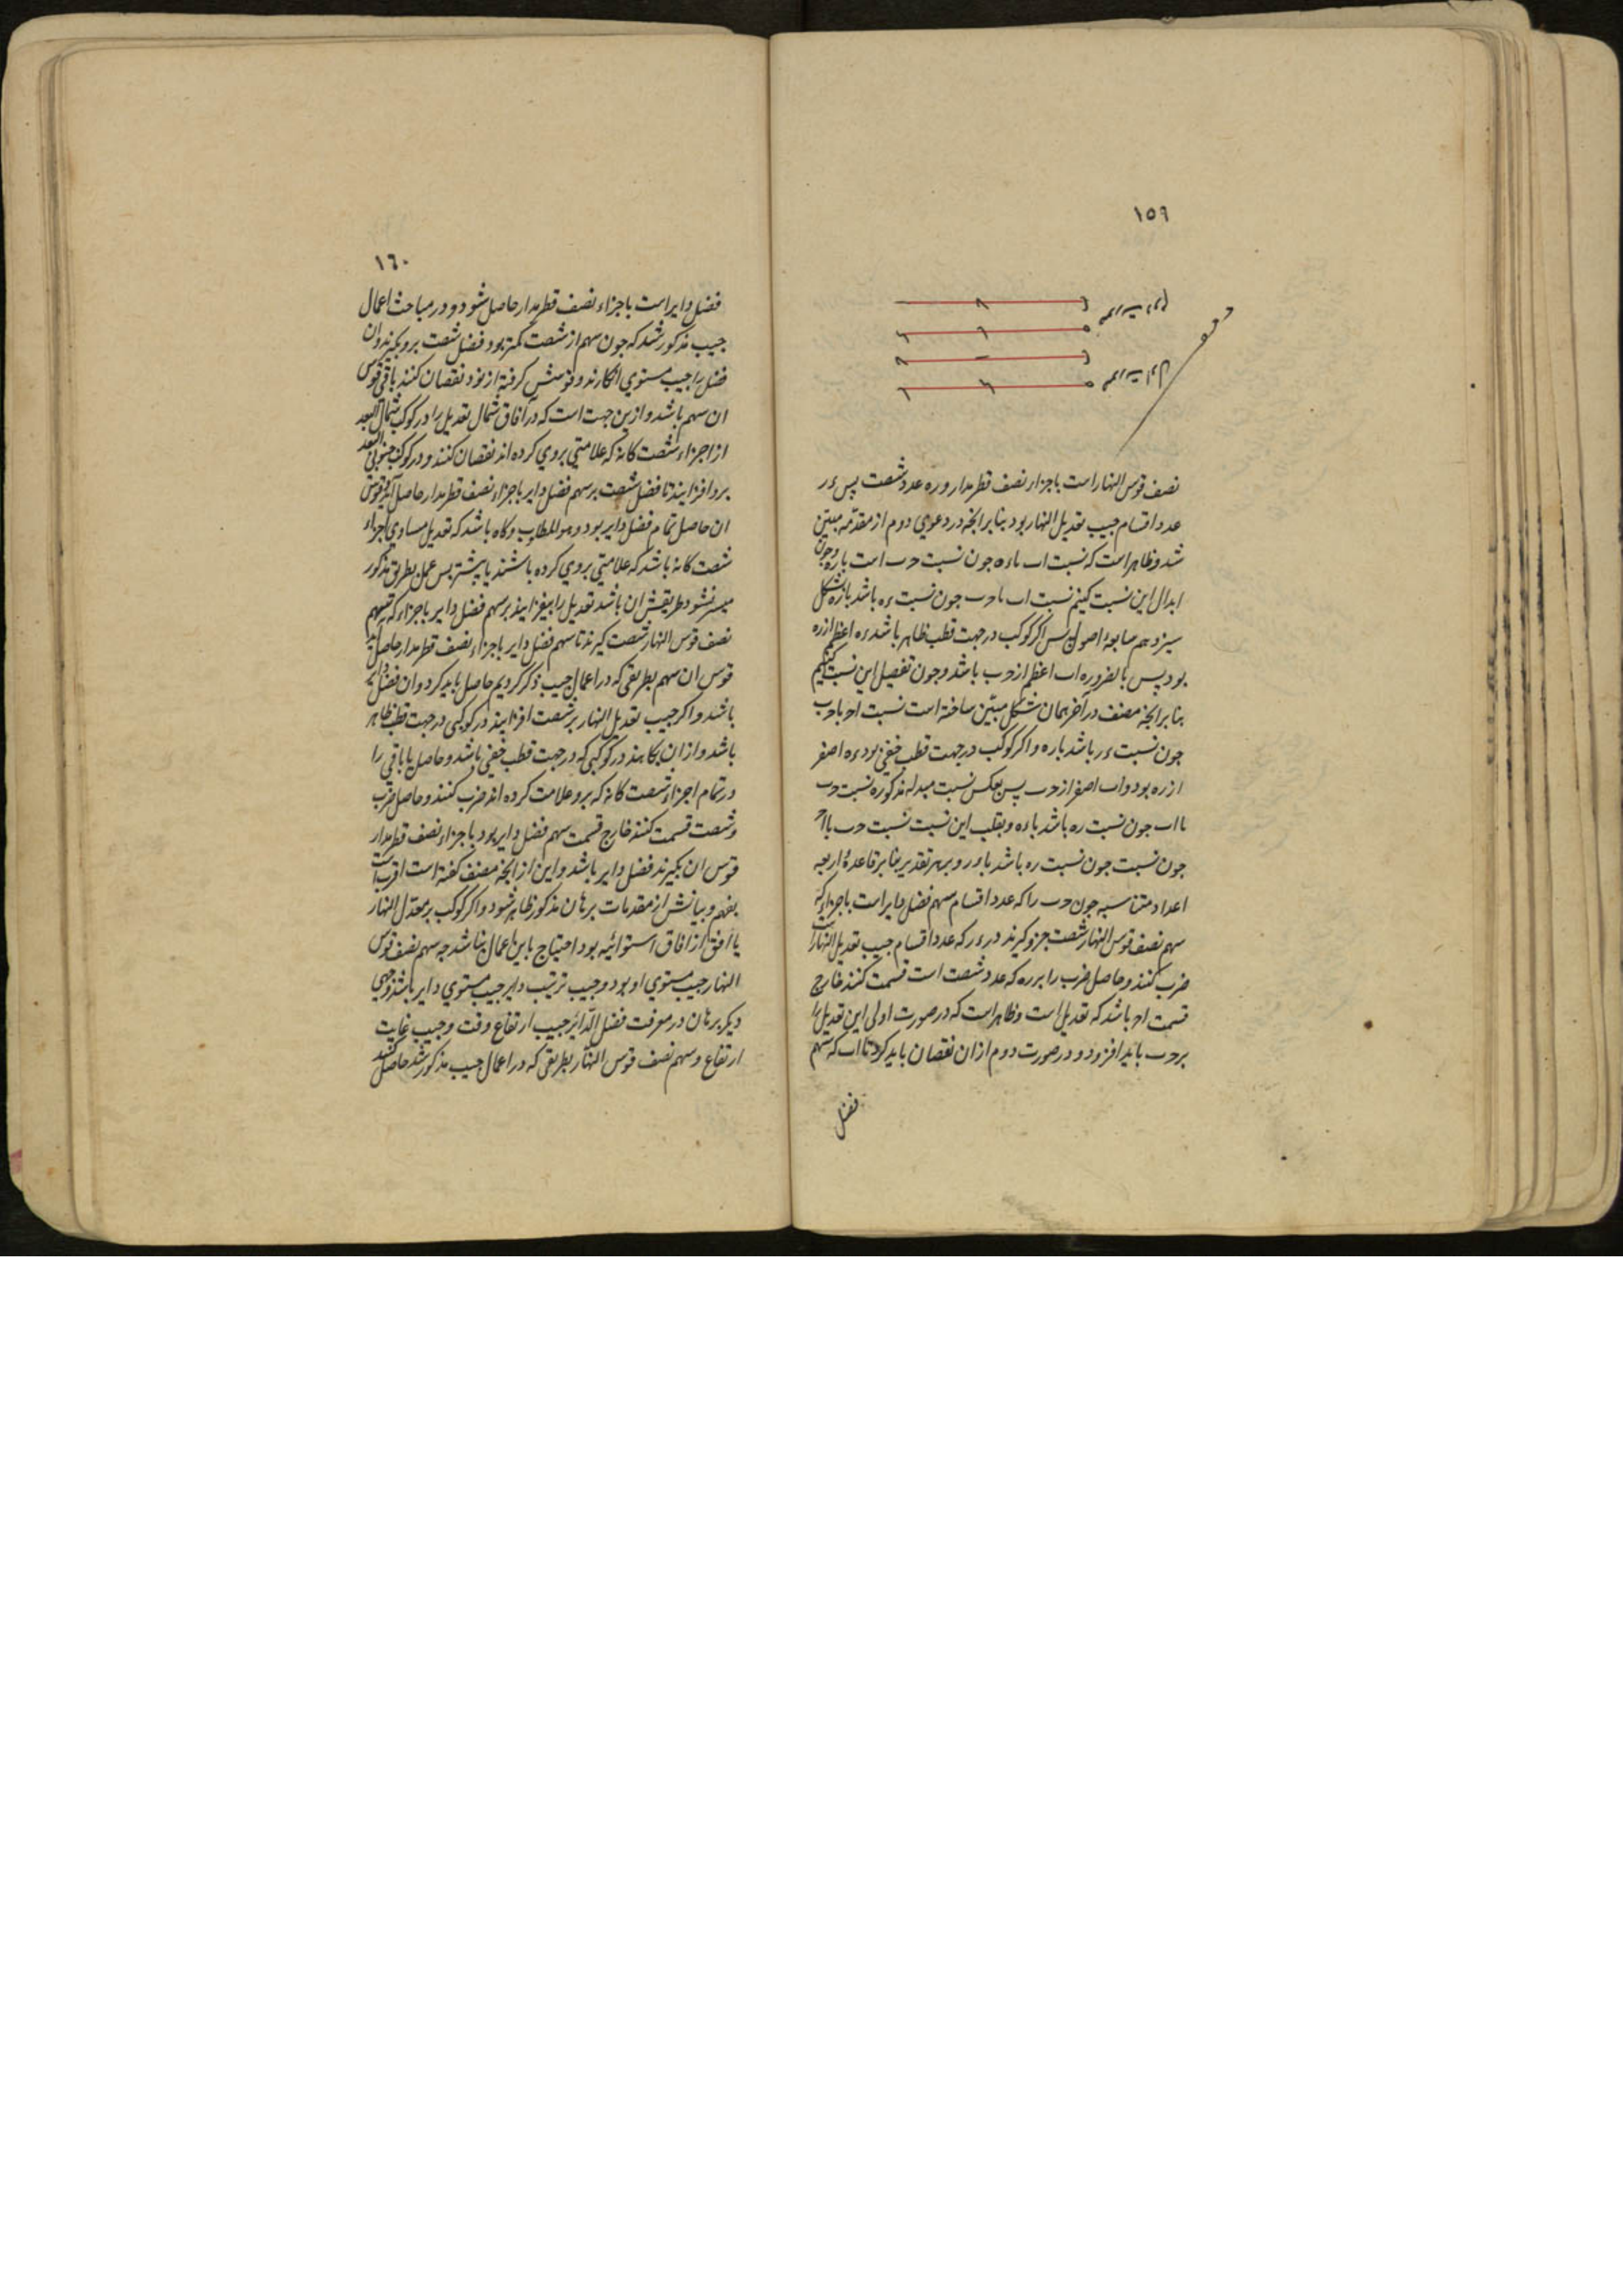 ١٥٩
نصف قوس النهار است باجزاء نصف قطر مدار و ره عدد شصت پس ءر
عدد اقسام جیب تعدیل النهار بود بنا بر انچه در دعوی دوم از مقدمه مبین
شد و ظاهر است که نسبت اب باءه جون نسبت حب است باره و جون
ابدال این نسبت کنیم نسبت اب باحب جون نسبت ءه باشد باره بشکل
سیزدهم اصول پس اگر کوکب در جهت قطب ظاهر باشد ءه اعظم ازره
بود پس بالضروره اب اعظم از حب باشد و جون تفصیل این نسبت کنیم
بنا بر انچه مصنف در آخر همان شکل مبین ساخته است نسبت اح باحب
جون نسبت ءر باشد باره و اگر کوکب در جهت قطب خفی بود ءه اصغر
ازره بود و اب اصغر از حب پس بعکس نسبت مبدله مذکوره نسبت حب
بااب جون نسبت ره باشد باءه و بقلب این نسبت نسبت حب بااح
جون نسبت جون نسبت ره باشد باءر و بر هر تقدیر بنا بر قاعدهٔ اربعه
اعداد متناسبه جون حب را که عدد اقسام سهم فضل دایر است باجزاء که
سهم نصف قوس النهار شصت جزو گیرند در ءر که عدد اقسام جیب تعدیل النهار است
ضرب کنند و حاصل ضرب را بر ره که عدد شصت است قسمت کنند خارج
قسمت اح باشد که تعدیل است و ظاهر است که در صورت اولی این تعدیل را
بر حب باید افزود و در صورت دوم از ان نقصان باید کرد تا اب که سهم
فضل
١٦٠
فضل دایر است باجزاء نصف قطر مدار حاصل شود و در مباحث اعمال
جیب مذکور شد که جون سهم از شصت کمتر بود فضل شصت برو بگیرند و ان
فضل را جیب مستوی انکارند و قوسش گرفته از نود نقصان کنند باقی قوس
ان سهم باشد و ازین جهت است که در آفاق شمال تعدیل را در کوکب شمالی البعد
از اجزاء شصت کانه که علامتی بروی کرده اند نقصان کنند و در کوکب جنوبی البعد
برو افزایند تا فضل شصت بر سهم فضل دایر باجزاء نصف قطر مدار حاصل آید و قوس
ان حاصل تمام فضل دایر بود و هو المطلوب و کاه باشد که تعدیل مساوی اجزاء
شصت کانه باشد که علامتی بروی کرده باشند یا بیشتر پس عمل بطریق مذکور
میسر نشود و طریقش ان باشد تعدیل را بیفزایند بر سهم فضل دایر باجزاء که سهم
نصف قوس النهار شصت گیرند تا سهم فضل دایر باجزاء نصف قطر مدار حاصل آید
قوس ان سهم بطریقی که در اعمال جیب ذکر کردیم حاصل باید کرد و ان فضل دایر
باشد و اگر جیب تعدیل النهار بر شصت افزایند در کوکبی در جهت قطب ظاهر
باشد و از ان بکاهند در کوکبی که در جهت قطب خفی باشد و حاصل یا باقی را
در تمام اجزاء شصت کانه که برو علامت کرده اند ضرب کنند و حاصل ضرب
و شصت قسمت کنند خارج قسمت سهم فضل دایر بود باجزاء نصف قطر مدار
قوس ان بگیرند فضل دایر باشد و این از انچه مصنف گفته است اقرب است
بفهم و بیانش از مقدمات برهان مذکور ظاهر شود و اگر کوکب بر معدل النهار
یا افق از آفاق استوائیه بود احتیاج باین اعمال نباشد چه سهم نصف قوس
النهار جیب مستوی او بود و جیب ترتیب دایر جیب مستوی دایر باشد وجهی
دیگر برهان در معرفت فضل الدائر جیب ارتفاع وقت و جیب غایت
ارتفاع و سهم نصف قوس النهار بطریقی که در اعمال جیب مذکور شد حاصل کنند